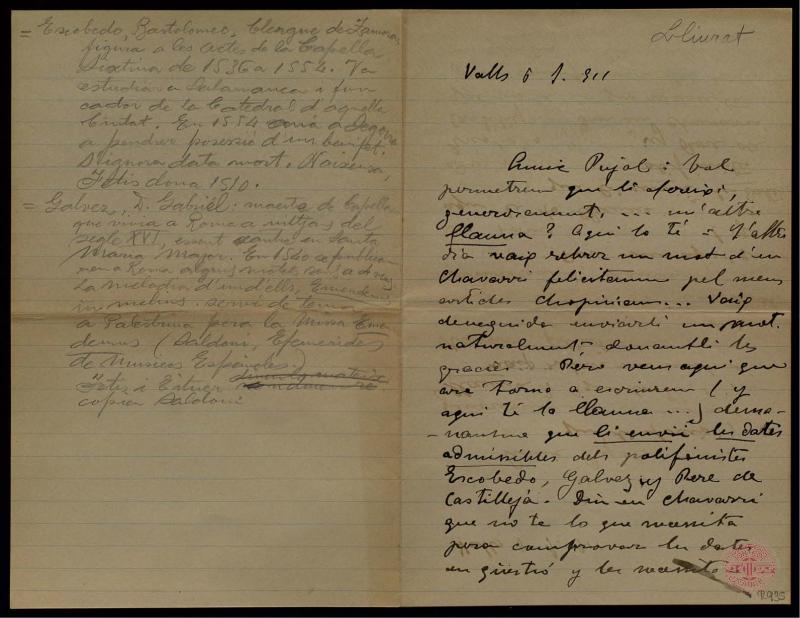 = Escobedo, Bartolomeo, Clergue de Zamora,
figura a les actes de la Capella
Sixtina de 1536 a 1554. Va
estudiar a Salamanca i fou
cador de la Catedral d'aquella
Ciutat. En 1554 a Segovia
a pendrer possessió d'un benifet.
S'ignora data mort.
Fetis dona 1510.
= Galvez, D. Gabriel: maestro de Capella
que vivia a Roma a mitjas del
segle XVI, essent cantor en Santa
Maria Major. En 1540
a Roma alguns motets
La melodia d'un d'ells, Emendemus
in melius. serví de tema
a Palestrina pera la Missa Eme
demus (Saldoni, Efemérides
de Musicos Españoles)
Fetis i Eitner
copien Saldoni
Lliurat
Valls 6 911
Amic Pujol: Vol
permetrem que li ofereixi,
generosament, ... un'altre
llauna? Aqui la té = L'altre
dia vaig rebrer un mot d'en
Chavarri felicitanme pel meus
articles Chopinians... Vaig
deseguida enviarli un mot.
naturalment donantli les
gracies. Però vem aqui que
ara torna a escriurem (y
aqui té la llauna...) dema-
-nantme que li envii les dates
admissibles dels polifonistes
Escobedo, Galvez y Pere de
Castilleja. Diu en Chavarri
que no te lo que necessita
pera comprovar les dates
en qüestió y les necessita
R935